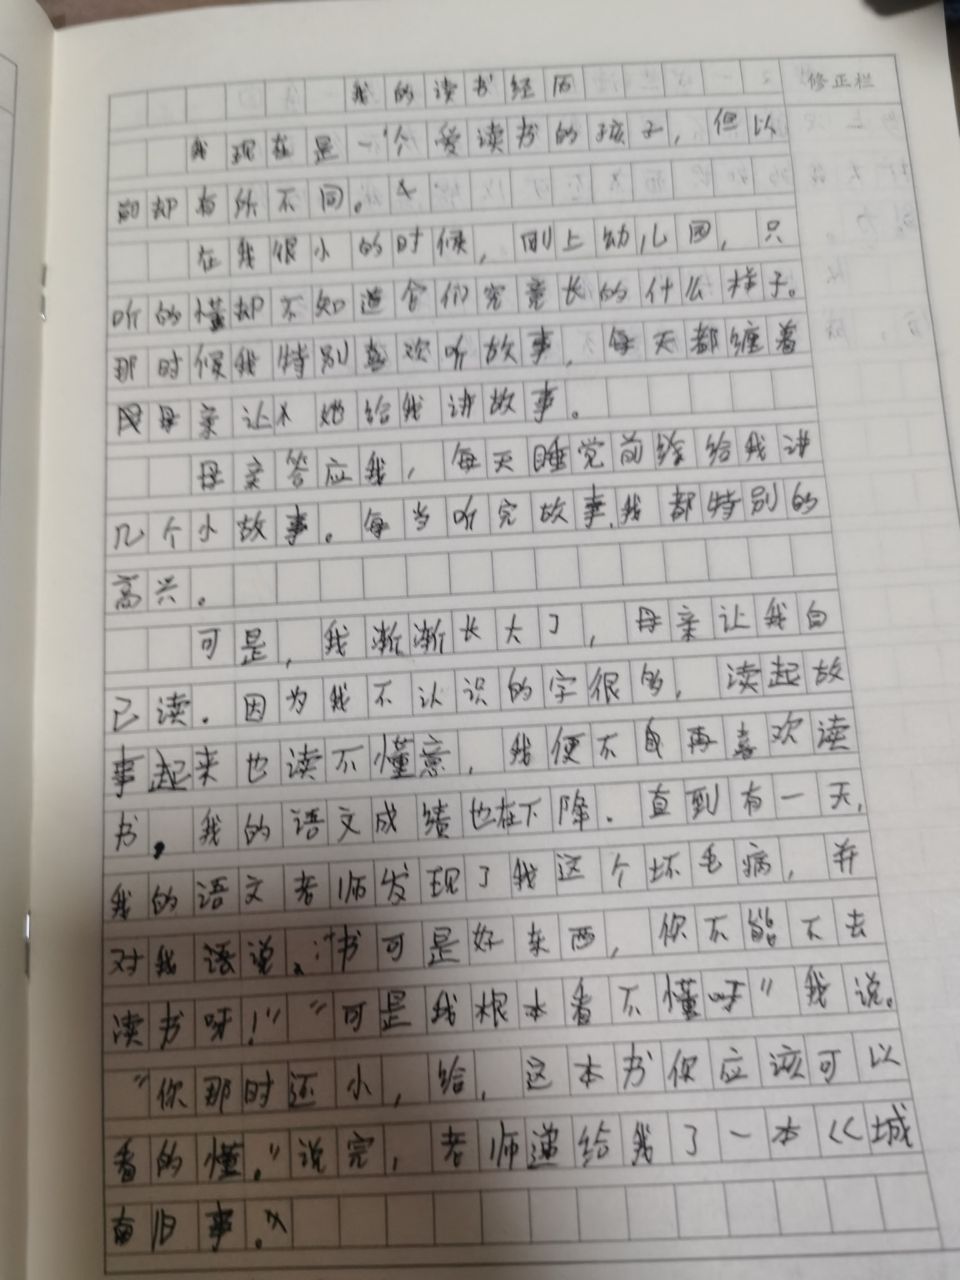 我的读书经历
修正栏
我现在是一个爱读书的孩子，但以
前却有所不同。
在我很小的时候，刚上幼儿园，只
听的懂却不知道它们究竟长的什么样子。
那时候我特别喜欢听故事，每天都缠着
母亲让她给我讲故事。
母亲答应我，每天睡觉前给我讲
几个小故事。每当听完故事，我都特别的
高兴。
可是，我渐渐长大了，母亲让我自
己读。因为我不认识的字很多，读起故
事起来也读不懂意，我便不再喜欢读
书。我的语文成绩也在下降。直到有一天，
我的语文老师发现了我这个坏毛病，并
对我语说：“书可是好东西，你不能不去
读书呀！”“可是我根本看不懂呀”我说。
“你那时还小，给，这本书你应该可以
看的懂。”说完，老师递给我了一本《城
南旧事。